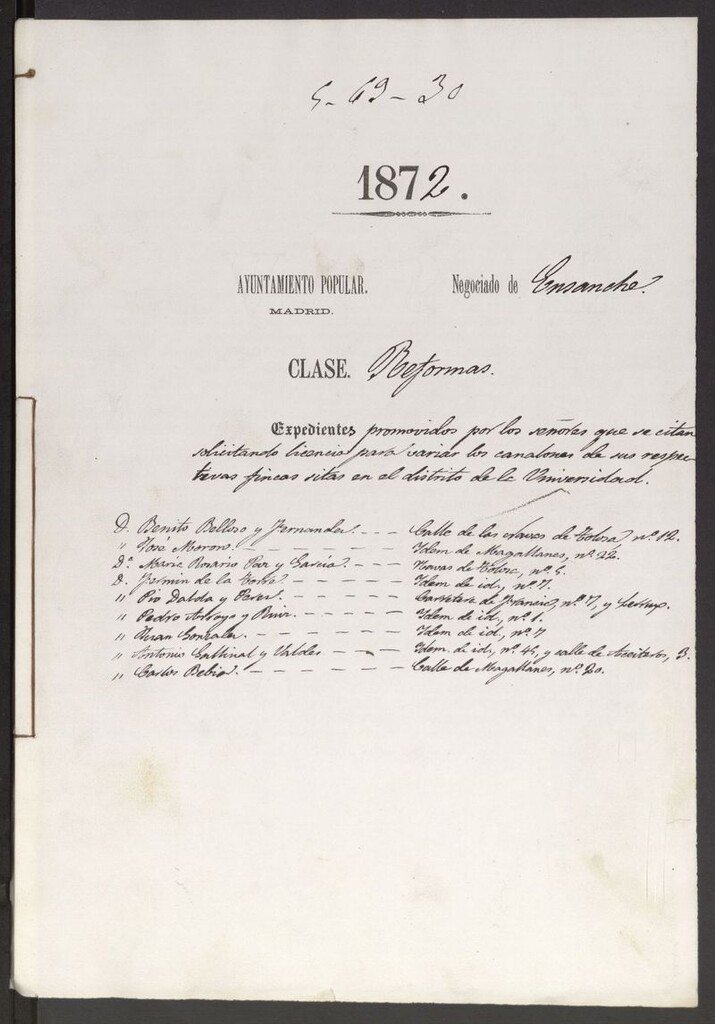 5-69-30
1872.
AYUNTAMIENTO POPULAR.
MADRID.
Negociado de Ensanche.
CLASE. Reformas.
Expedientes promovidos por los señores que se citan
solicitando licencia para variar los canalones de sus respec-
tivas fincas sitas en el distrito de la Universidad.
D. Benito Belloso y Fernandez. - - - Calle de las Navas de Tolosa, nº 12.
" José Morono. - - - - - - Idem de Magallanes, nº 22.
Dª Maria Rosario Paz y García. - - - Navas de Tolosa, nº 5.
D. Fermin de la Torre - - - - - Idem de id, nº 7.
" Pio Dalda y Perez. - - - - - Carretera de Francia, nº 7, y
" Pedro Arroyo y - - - - - Idem de id, nº 1.
" Juan Gonzalez. - - - - - - Idem de id, nº 7
" Antonio Gallinal y Valdes - - - - Idem de id, nº 45, y calle de Aceiteros, 3.
" Carlos Bebia. - - - - - - Calle de Magallanes, nº 20.